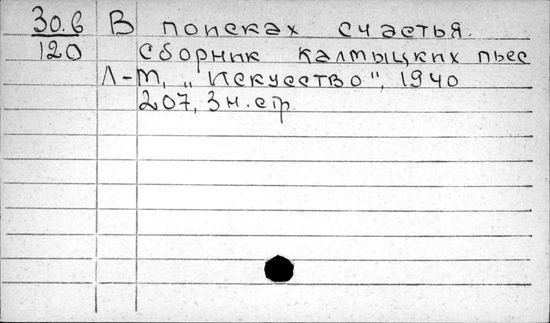 30.6 В поисках счастья.
120 Сборник калмыцких пьес
Л-М, „Искусство", 1940
207, 3 н. стр.